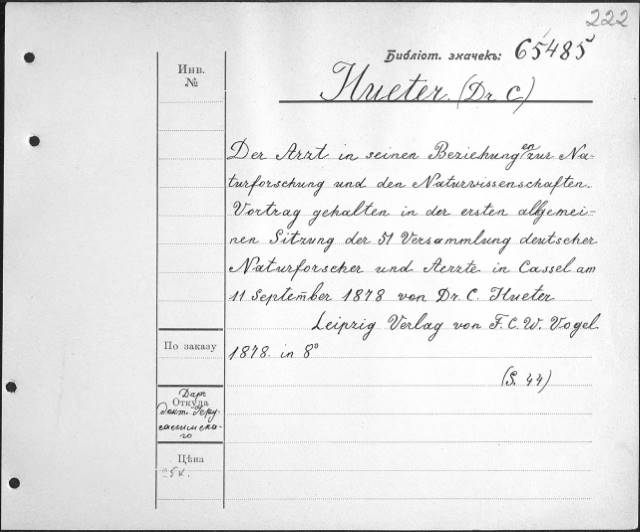 222
Библіот. значекъ: 65485
Инв.
№
Hueter (Dr. C)
Der Arzt in seinen Beziehungen zur Na-
turforschung und den Naturwissenschaften.
Vortrag gehalten in der ersten allgemei-
nen Sitzung der 51 Versammlung deutscher
Naturforscher und Aerzte in Cassel am
11 September 1878 von Dr. C. Hueter
Leipzig Verlag von F. C. W. Vogel
1878. in 8°
(S. 44)
По заказу
Даръ
Откуда
докт.
Цѣна
5к.